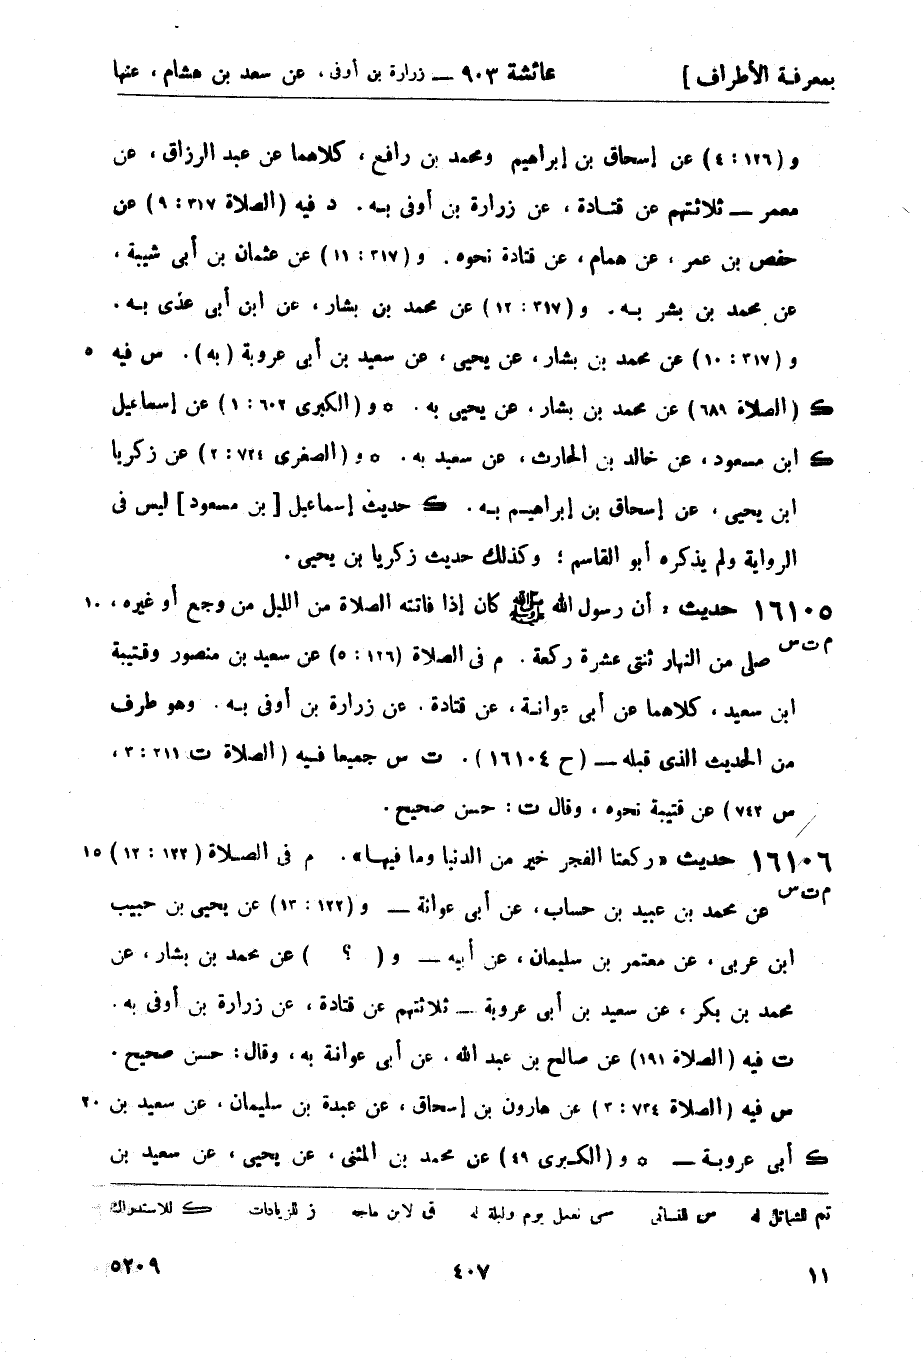 بمعرفة الأطراف ] عائشة ٩٠٣ — زرارة بن أوفى، عن سعد بن هشام، عنها
و (١٢٦ : ٤) عن إسحاق بن إبراهيم ومحمد بن رافع، كلاهما عن عبد الرزاق، عن
معمر — ثلاثتهم عن قتادة، عن زرارة بن أوفى به. د فيه (الصلاة ٣١٧ : ٩) عن
حفص بن عمر، عن همام، عن قتادة نحوه. و (٣١٧ : ١١) عن عثمان بن أبى شيبة،
عن محمد بن بشر به. و (٣١٧ : ١٢) عن محمد بن بشار، عن ابن أبى عذى به.
و (٣١٧ : ١٠) عن محمد بن بشار، عن يحيى، عن سعيد بن أبى عروبة (به). س فيه ٥
ك (الصلاة ٦٨٩) عن محمد بن بشار، عن يحيى به. ٥ و (الكبرى ٦٠٢ : ١) عن إسماعيل
ك ابن مسعود، عن خالد بن الحارث، عن سعيد به. ٥ و (الصغرى ٧٢٤ : ٢) عن زكريا
ابن يحيى، عن إسحاق بن إبراهيم به. ك حديث إسماعيل [ بن مسعود ] ليس فى
الرواية ولم يذكره أبو القاسم؛ وكذلك حديث زكريا بن يحيى.
١٦١٠٥ حديث: أن رسول الله ﷺ كان إذا فاتته الصلاة من الليل من وجع أو غيره، ١٠
م ت س صلى من النهار ثنتى عشرة ركعة. م فى الصلاة (١٢٦ : ٥) عن سعيد بن منصور وقتيبة
ابن سعيد، كلاهما عن أبى عوانة، عن قتادة. عن زرارة بن أوفى به. وهو طرف
من الحديث الذى قبله — (ح ١٦١٠٤). ت س جميعا فيه (الصلاة ت ٢١١ : ٣،
س ٧٤٢) عن قتيبة نحوه، وقال ت: حسن صحيح.
١٦١٠٦ حديث «ركعتا الفجر خير من الدنيا وما فيها». م فى الصلاة (١٢٢ : ١٢) ١٥
م ت س عن محمد بن عبيد بن حساب، عن أبى عوانة — و (١٢٢ : ١٣) عن يحيى بن حبيب
ابن عربى، عن معتمر بن سليمان، عن أبيه — و ( ؟ ) عن محمد بن بشار، عن
محمد بن بكر، عن سعيد بن أبى عروبة — ثلاثتهم عن قتادة، عن زرارة بن أوفى به.
ت فيه (الصلاة ١٩١) عن صالح بن عبد الله. عن أبى عوانة به، وقال: حسن صحيح.
س فيه (الصلاة ٧٣٤ : ٣) عن هارون بن إسحاق، عن عبدة بن سليمان، عن سعيد بن ٢٠
ك أبى عروبة — ٥ و (الكبرى ٤٩) عن محمد بن المثنى، عن يحيى، عن سعيد بن
تم للشمائل له س للنسائى سى لعمل يوم وليلة له ق لابن ماجه ز للزيادات ك للاستدراك
١١ ٤٠٧ ٥٢٠٩